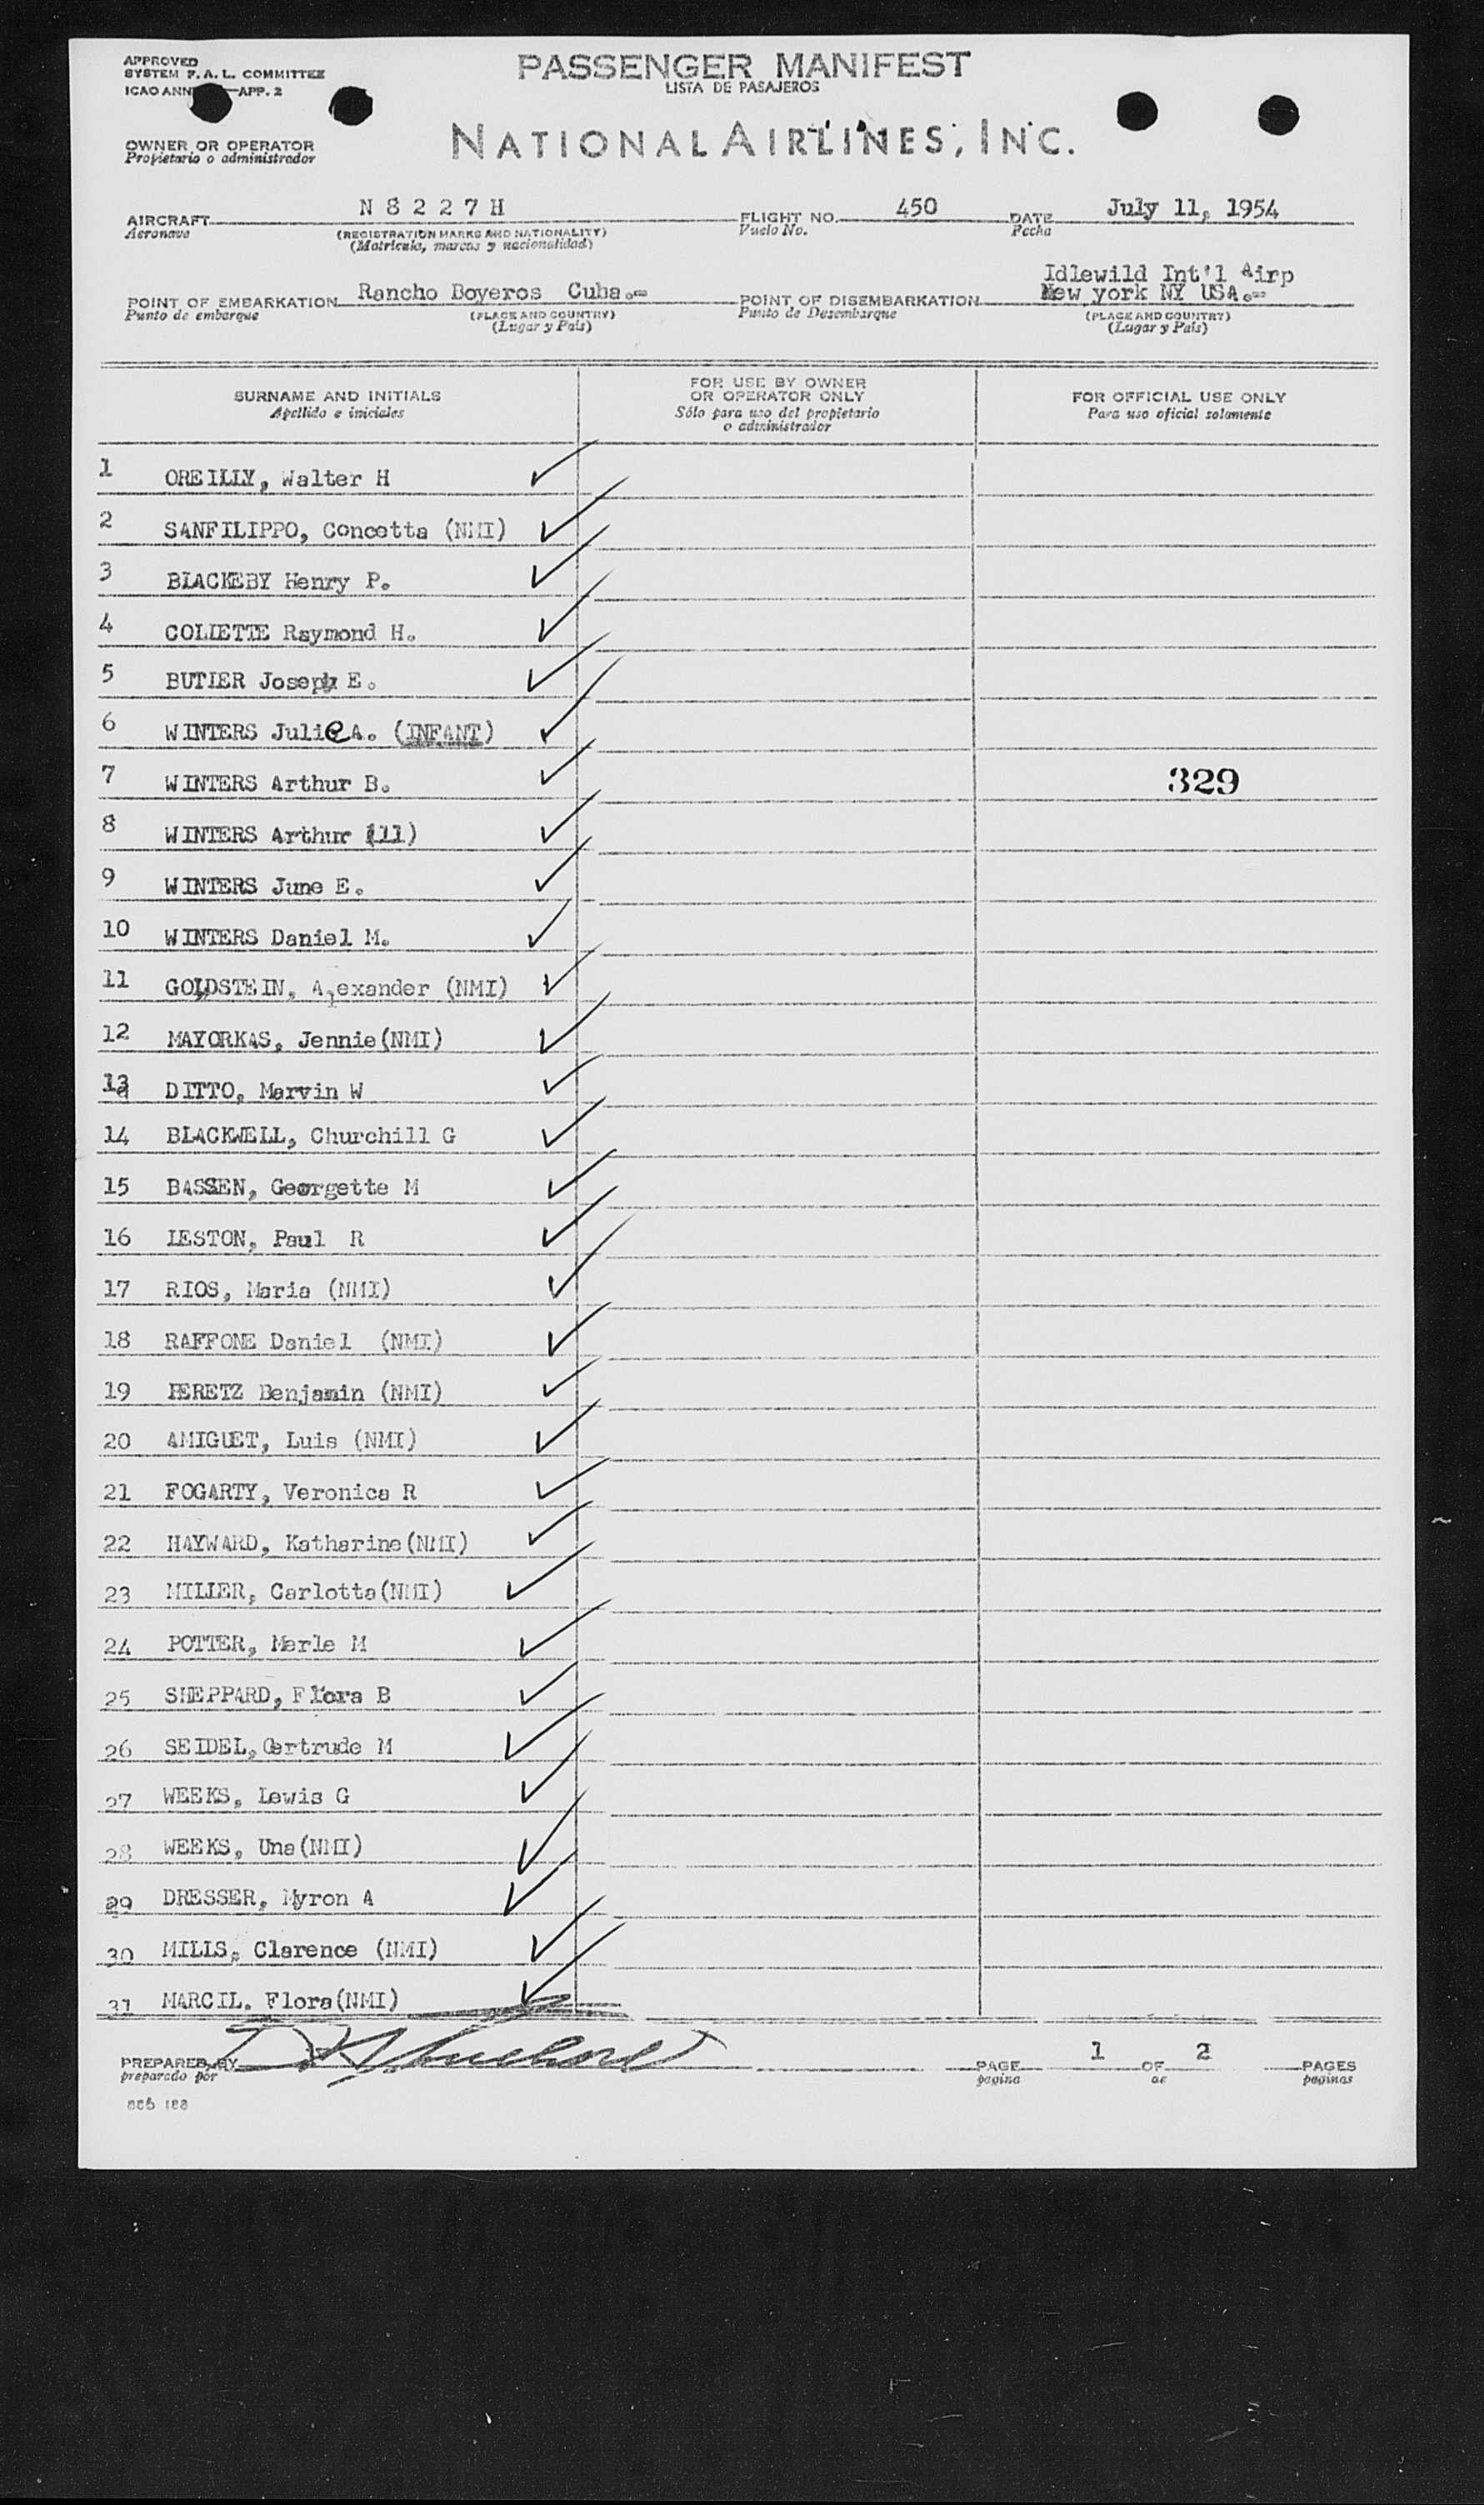 APPROVED
SYSTEM F.A.L. COMMITTEE
ICAO ANN APP. 2
PASSENGER MANIFEST
LISTA DE PASAJEROS
OWNER OR OPERATOR
Propietario o administrador
NATIONAL AIRLINES, INC.
AIRCRAFT N 8 2 2 7 H FLIGHT NO. 450 DATE July 11, 1954
Aeronave (REGISTRATION MARKS AND NATIONALITY) Vuelo No. Fecha
(Matricula, marcas y nacionalidad)
Idlewild Int'l Airp
POINT OF EMBARKATION Rancho Boyeros Cuba.= POINT OF DISEMBARKATION New york NY USA.=
Punto de embarque (PLACE AND COUNTRY) Punto de Desembarque (PLACE AND COUNTRY)
(Lugar y País) (Lugar y País)
SURNAME AND INITIALS
Apellido e iniciales
FOR USE BY OWNER
OR OPERATOR ONLY
Sólo para uso del propietario
o administrador
FOR OFFICIAL USE ONLY
Para uso oficial solamente
1 OREILLY, Walter H
2 SANFILIPPO, Concetta (NMI)
3 BLACKEBY Henry P.
4 COLLETTE Raymond H.
5 BUTLER Joseph E.
6 WINTERS Julie A. (INFANT)
7 WINTERS Arthur B. 329
8 WINTERS Arthur (111)
9 WINTERS June E.
10 WINTERS Daniel M.
11 GOLDSTEIN, Alexander (NMI)
12 MAYORKAS, Jennie(NMI)
13 DITTO, Marvin W
14 BLACKWELL, Churchill G
15 BASSEN, Georgette M
16 LESTON, Paul R
17 RIOS, Maria (NMI)
18 RAFFONE Daniel (NMI)
19 PERETZ Benjamin (NMI)
20 AMIGUET, Luis (NMI)
21 FOGARTY, Veronica R
22 HAYWARD, Katharine(NMI)
23 MILLER, Carlotta(NMI)
24 POTTER, Merle M
25 SHEPPARD, Flora B
26 SEIDEL, Gertrude M
27 WEEKS, Lewis G
28 WEEKS, Una(NMI)
29 DRESSER, Myron A
30 MILLS, Clarence (NMI)
31 MARCIL. Flora(NMI)
PREPARED BY PAGE 1 OF 2 PAGES
preparado por pagina de paginas